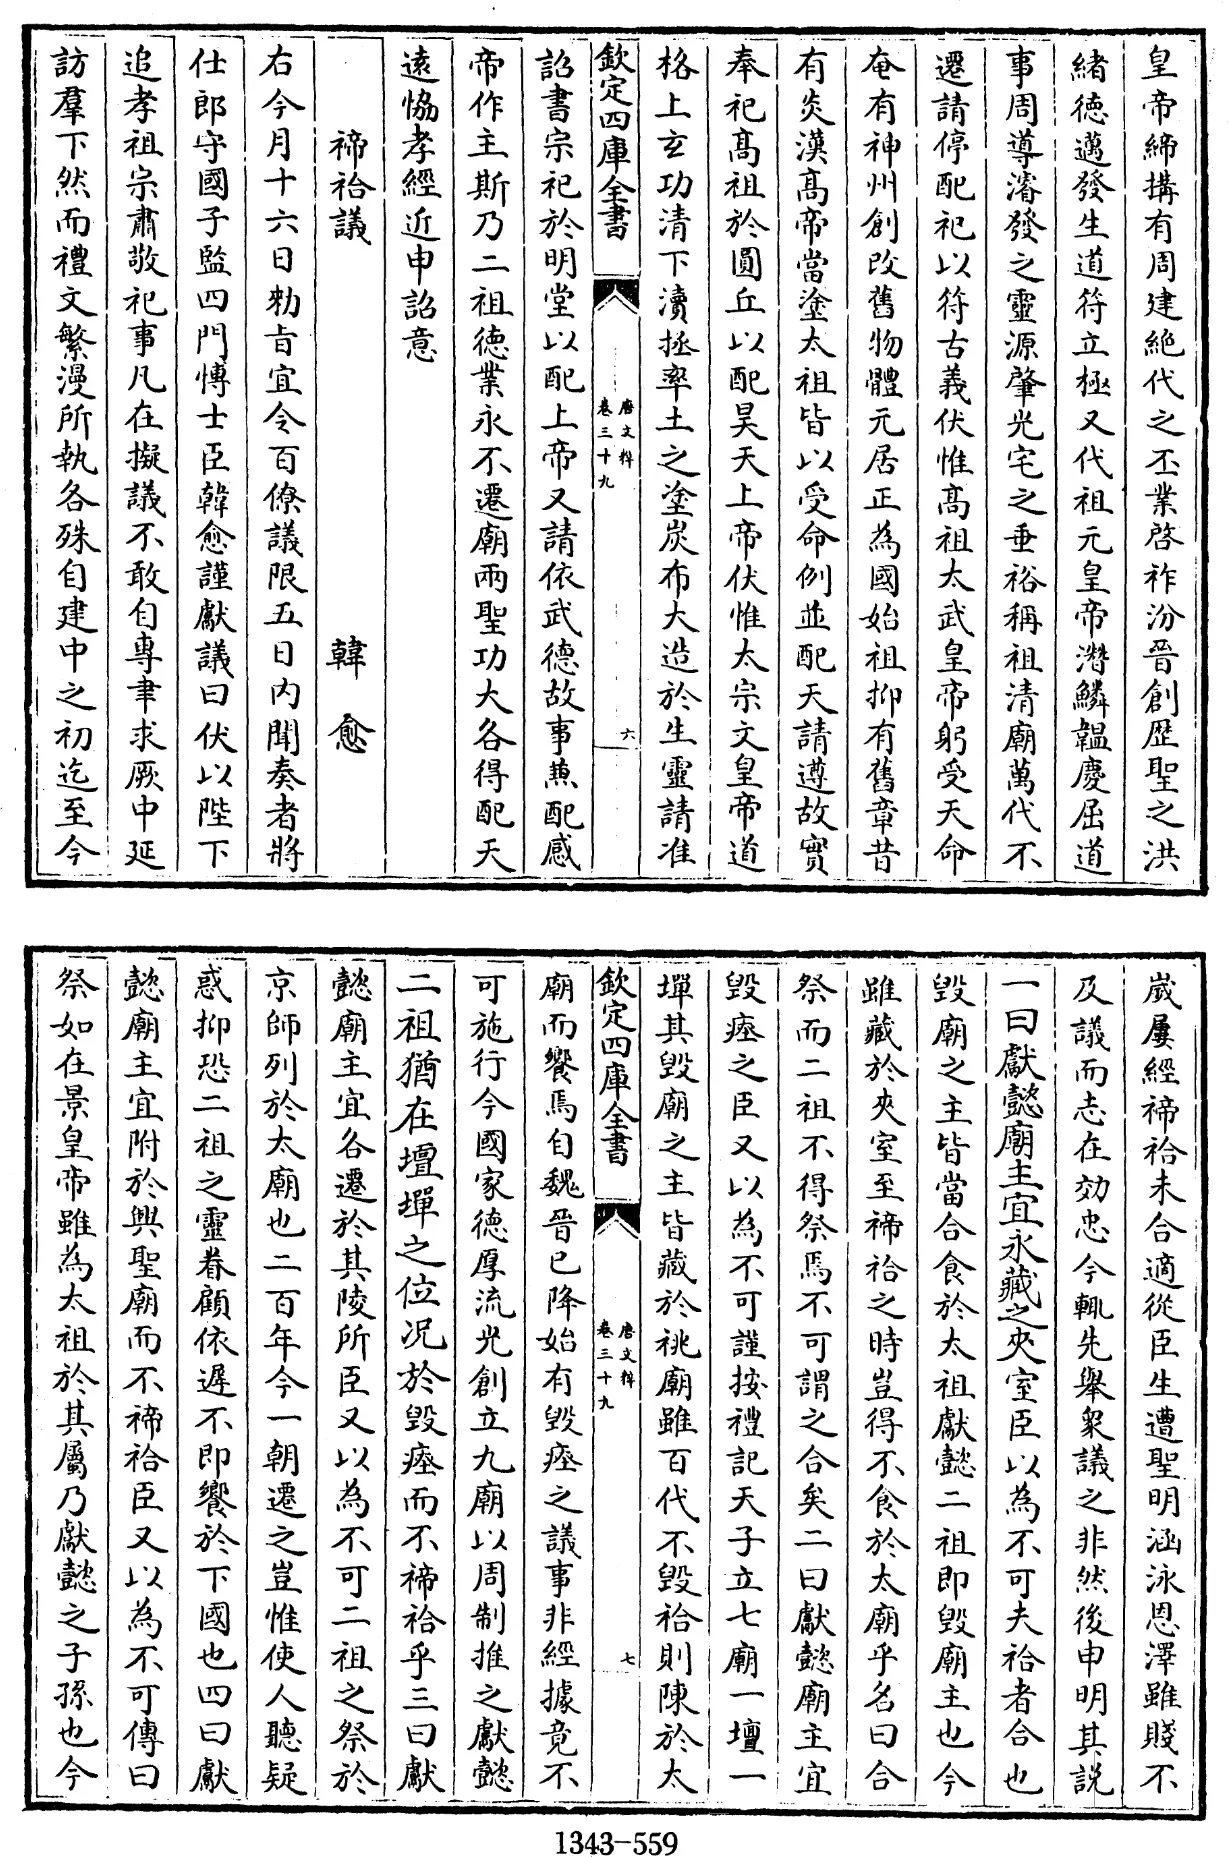 皇帝締搆有周建絶代之丕業啓祚汾晉創歴聖之洪
緒德邁發生道符立極又代祖元皇帝濳鱗韞慶屈道
事周導濬發之靈源肇光宅之垂裕稱祖清廟萬代不
遷請停配祀以符古義伏惟髙祖太武皇帝躬受天命
奄有神州創改舊物體元居正為國始祖抑有舊章昔
有炎漢髙帝當塗太祖皆以受命例並配天請遵故實
奉祀髙祖於圓丘以配昊天上帝伏惟太宗文皇帝道
格上玄功清下瀆拯率土之塗炭布大造於生靈請准
欽定四庫全書
唐文粹
卷三十九
六
詔書宗祀於明堂以配上帝又請依武德故事兼配感
帝作主斯乃二祖德業永不遷廟兩聖功大各得配天
遠恊孝經近申詔意
禘祫議 韓愈
右今月十六日勑旨宜令百僚議限五日内聞奏者將
仕郎守國子監四門博士臣韓愈謹獻議曰伏以陛下
追孝祖宗肅敬祀事凡在擬議不敢自專聿求厥中延
訪羣下然而禮文繁漫所執各殊自建中之初迄至今
嵗屢經禘祫未合適從臣生遭聖明涵泳恩澤雖賤不
及議而志在効忠今輒先舉衆議之非然後申明其説
一曰獻懿廟主宜永藏之夾室臣以為不可夫祫者合也
毁廟之主皆當合食於太祖獻懿二祖即毁廟主也今
雖藏於夾室至禘祫之時豈得不食於太廟乎名曰合
祭而二祖不得祭焉不可謂之合矣二曰獻懿廟主宜
毁瘞之臣又以為不可謹按禮記天子立七廟一壇一
墠其毁廟之主皆藏於祧廟雖百代不毁祫則陳於太
欽定四庫全書
唐文粹
卷三十九
七
廟而饗焉自魏晉已降始有毁瘞之議事非經據竟不
可施行今國家德厚流光創立九廟以周制推之獻懿
二祖猶在壇墠之位况於毁瘞而不禘祫乎三曰獻
懿廟主宜各遷於其陵所臣又以為不可二祖之祭於
京師列於太廟也二百年今一朝遷之豈惟使人聽疑
惑抑恐二祖之靈眷顧依遲不即饗於下國也四曰獻
懿廟主宜附於興聖廟而不禘祫臣又以為不可傳曰
祭如在景皇帝雖為太祖於其屬乃獻懿之子孫也今
1343-559